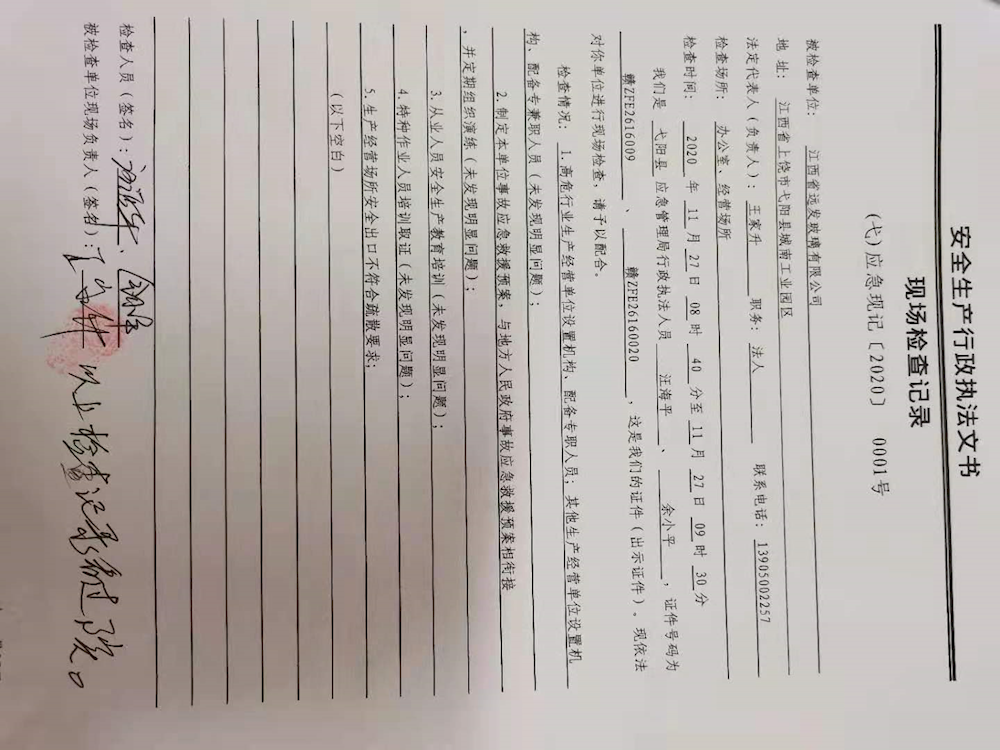 安全生产行政执法文书
现场检查记录
(弋)应急现记〔2020〕 0001号
被检查单位: 江西省远发玻璃有限公司
地址: 江西省上饶市弋阳县城南工业园区
法定代表人(负责人): 王家升 职务: 法人 联系电话: 13905002257
检查场所: 办公室、经营场所
检查时间: 2020 年 11 月 27 日 08 时 40 分至 11 月 27 日 09 时 30 分
我们是 弋阳县 应急管理局行政执法人员 汪海平 、 余小平 , 证件号码为
赣ZFE2616009 、 赣ZFE26160020 , 这是我们的证件(出示证件)。现依法
对你单位进行现场检查, 请予以配合。
检查情况: 1. 高危行业生产经营单位设置机构、配备专职人员; 其他生产经营单位设置机
构、配备专兼职人员(未发现明显问题);
2. 制定本单位事故应急救援预案, 与地方人民政府事故应急救援预案相衔接
, 并定期组织演练(未发现明显问题);
3. 从业人员安全生产教育培训(未发现明显问题);
4. 特种作业人员培训取证(未发现明显问题);
5. 生产经营场所安全出口不符合疏散要求;
(以下空白)
检查人员(签名):
被检查单位现场负责人(签名): 以上检查记录经过